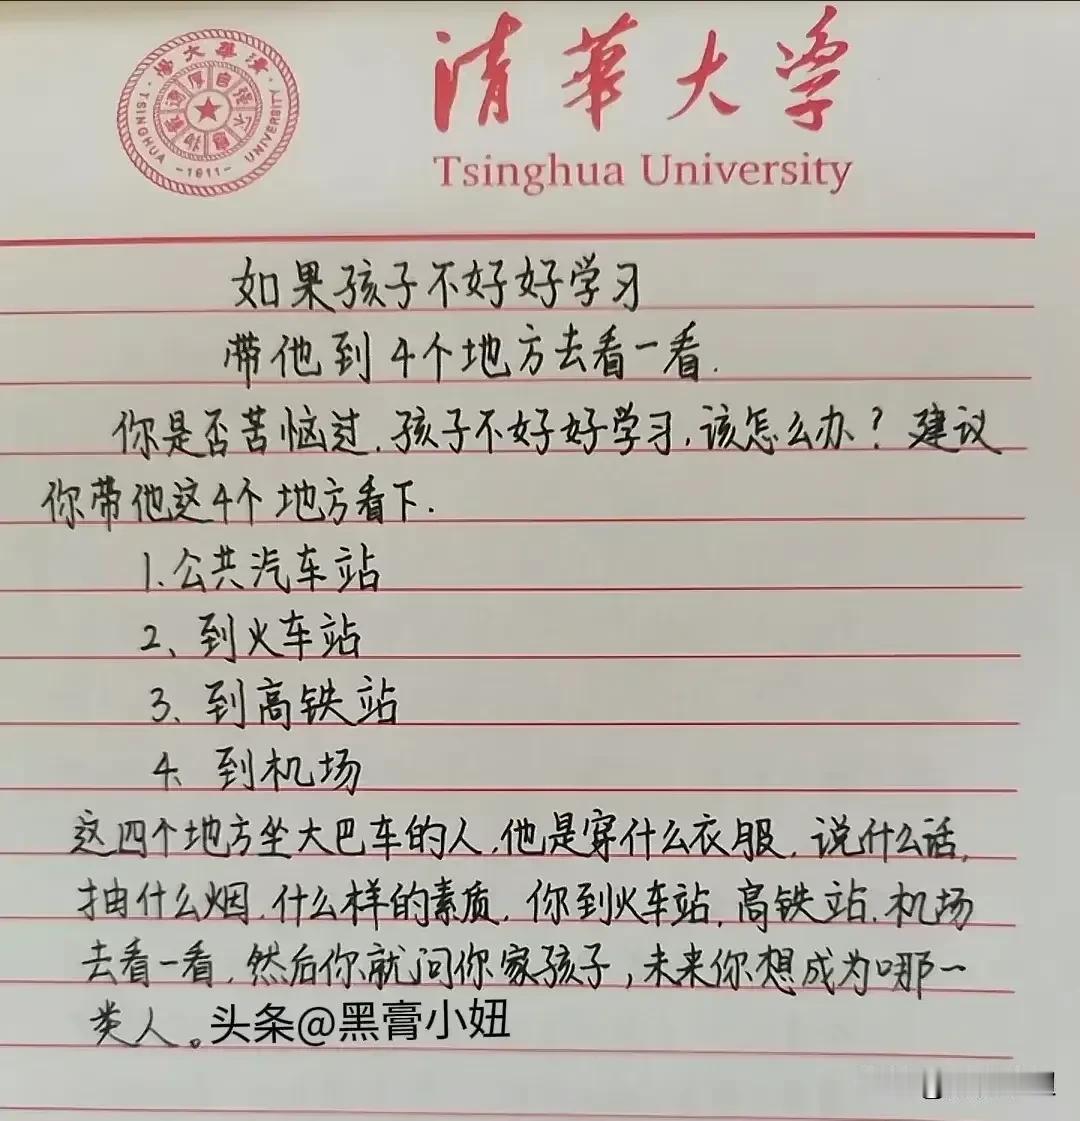 清華大学
Tsinghua University
清華大學
TSINGHUA UNIVERSITY
-1911-
自强不息厚德载物
如果孩子不好好学习
带他到4个地方去看一看.
你是否苦恼过,孩子不好好学习,该怎么办?建议
你带他这4个地方看下.
1.公共汽车站
2、到火车站
3、到高铁站
4、到机场
这四个地方坐大巴车的人,他是穿什么衣服,说什么话,
抽什么烟,什么样的素质,你到火车站,高铁站,机场
去看一看,然后你就问你家孩子,未来你想成为哪一
类人。头条@黑膏小妞